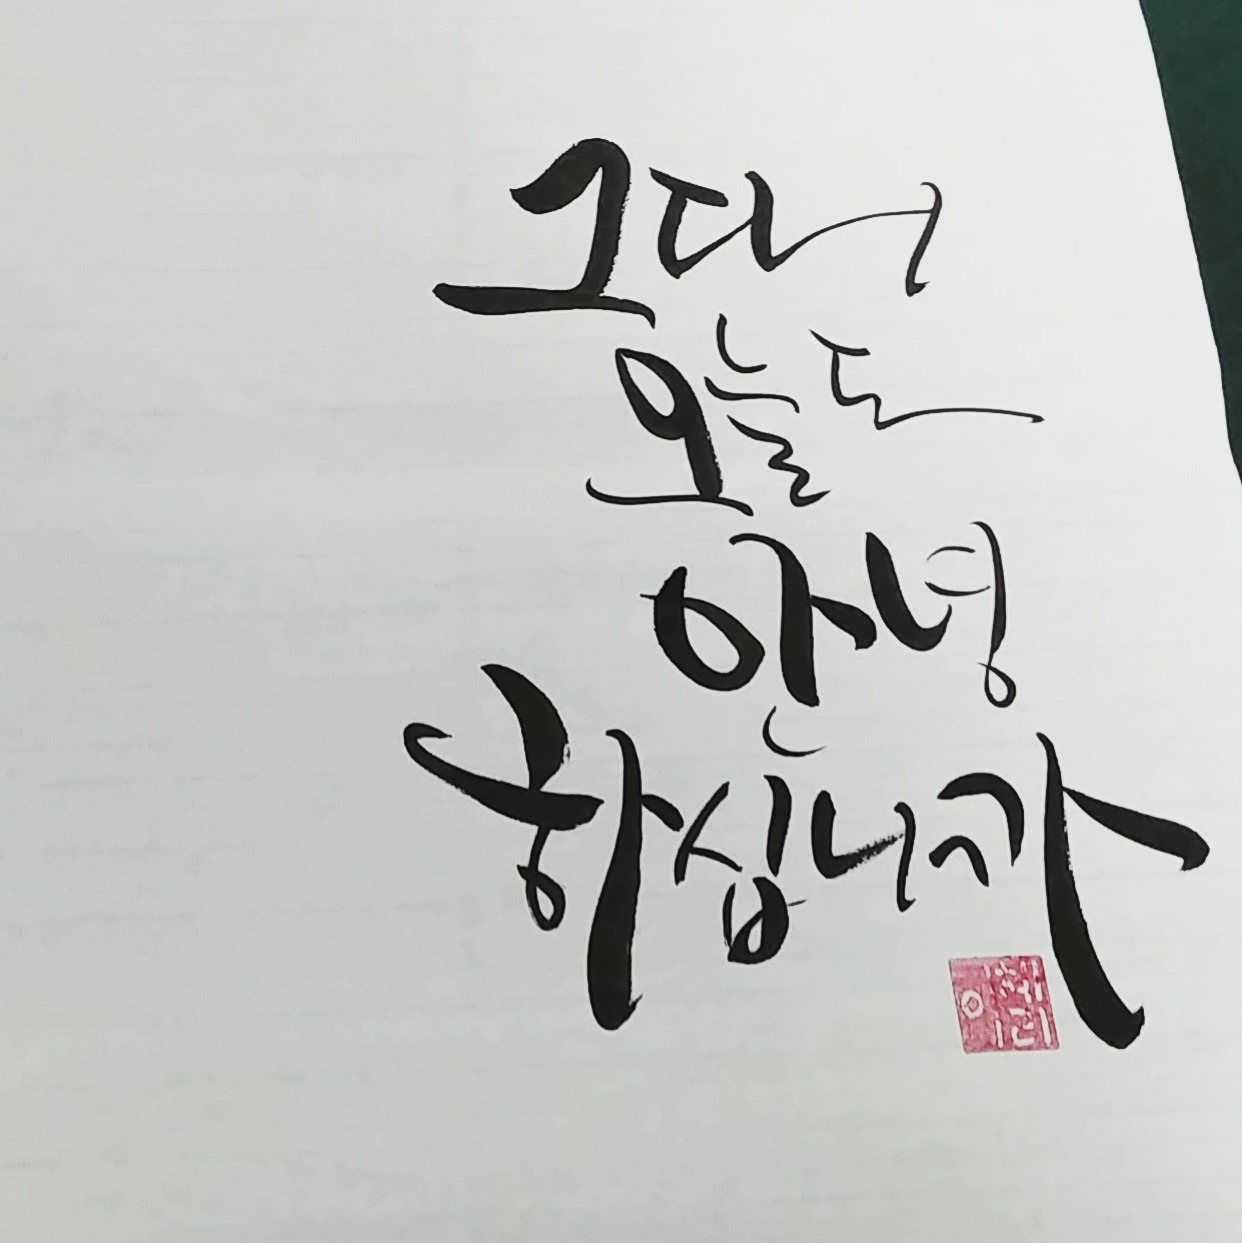 그대
오늘도
안녕
하십니까